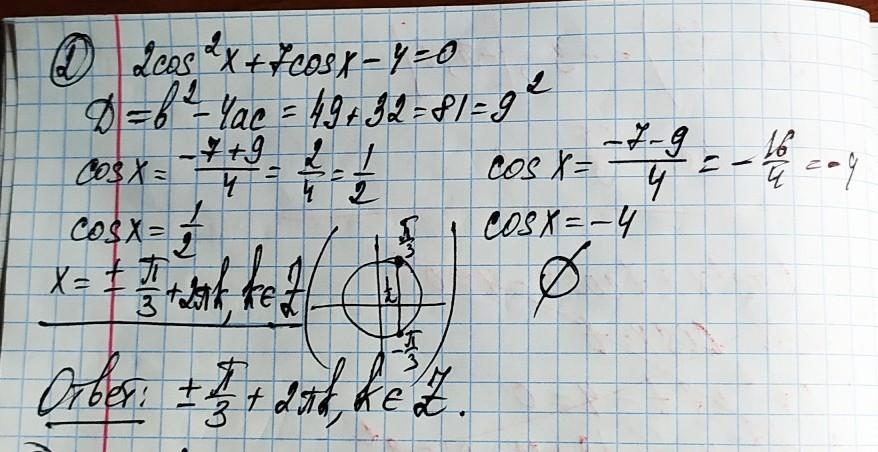 ② 2cos²x + 7cosx - 4 = 0
D = b² - 4ac = 49 + 32 = 81 = 9²
cosx = (-7+9)/4 = 2/4 = 1/2
cosx = (-7-9)/4 = -16/4 = -4
cosx = 1/2
cosx = -4
x = ± π/3 + 2πk, k ∈ Z
π/3
1/2
-π/3
∅
Ответ: ± π/3 + 2πk, k ∈ Z.